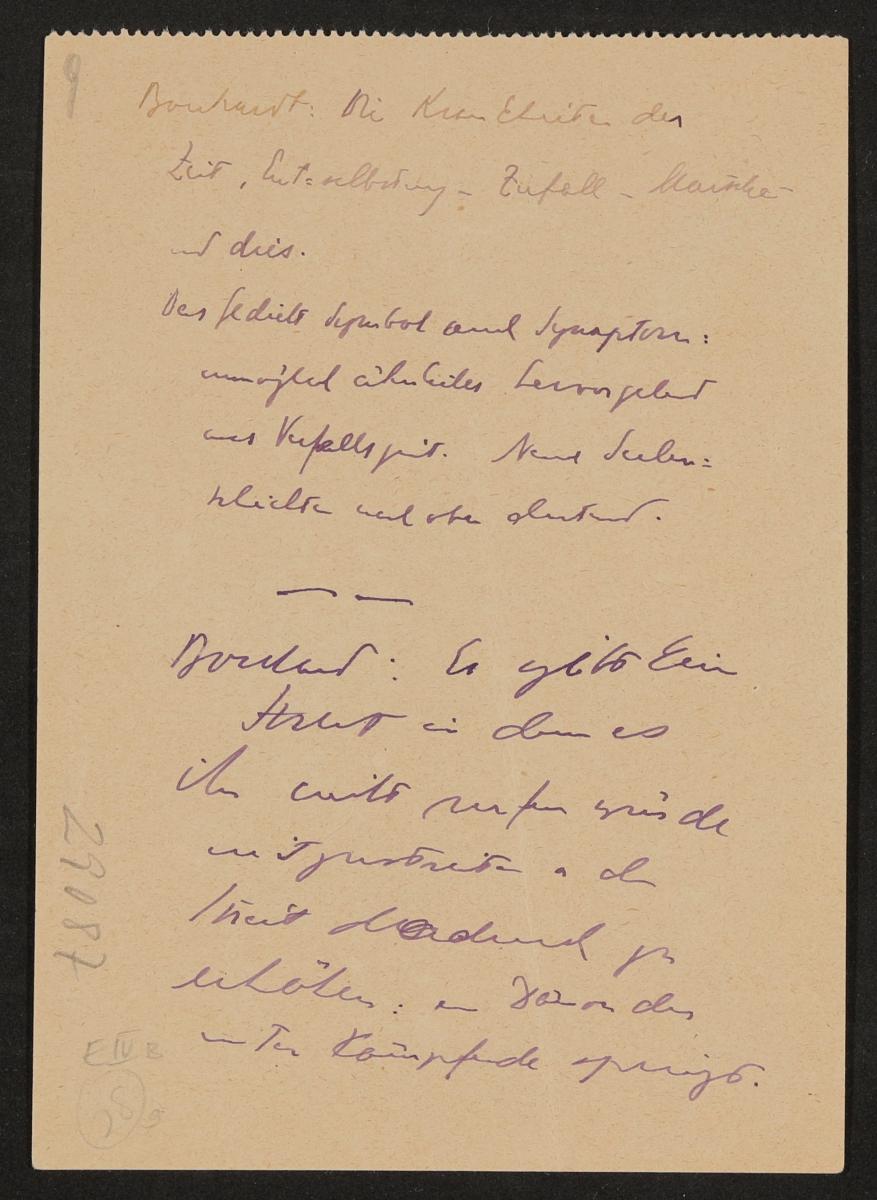 9
Borchardt: Die Krankheiten der
Zeit, Entselbstung – Zufall – Maische
und dies.
Das Gedicht Symbol und Symptom:
unmöglich ähnliches hervorgehend
aus Verfallszeit. Neue Seelen=
schichten und oben
Borchardt: Es gibt kein
Streit in dem es
ihn nicht rufen würde
mitzustreiten u den
Streit dadurch zu
erhöhen: ein Dämon der
unter Kämpfende springt.
29087
E IV B
28 9